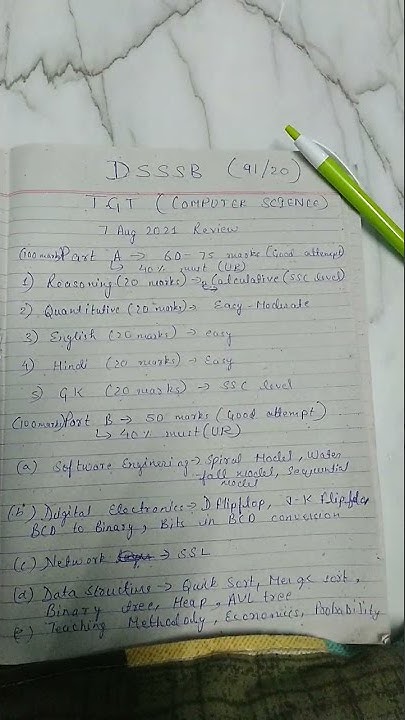 DSSSB (91/20)
TGT (COMPUTER SCIENCE)
7 Aug 2021 Review
(100 marks) Part A → 60-75 marks (Good attempt)
↳ 40% must (UR)
1) Reasoning (20 marks) → Calculative (SSC level)
2) Quantitative (20 marks) → Easy-Moderate
3) English (20 marks) → easy
4) Hindi (20 marks) → Easy
5) GK (20 marks) → SSC level
(100 marks) Part B → 50 marks (Good attempt)
↳ 40% must (UR)
(a) Software Engineering → Spiral Model, Water
fall model, Sequential
model
(b) Digital Electronics → D flipflop, J-K flipflop
BCD to Binary, Bits in BCD conversion
(c) Network → SSL
(d) Data Structure → Quick Sort, Merge sort,
Binary tree, Heap, AVL tree
e) Teaching Methodoly, Economics, Probability